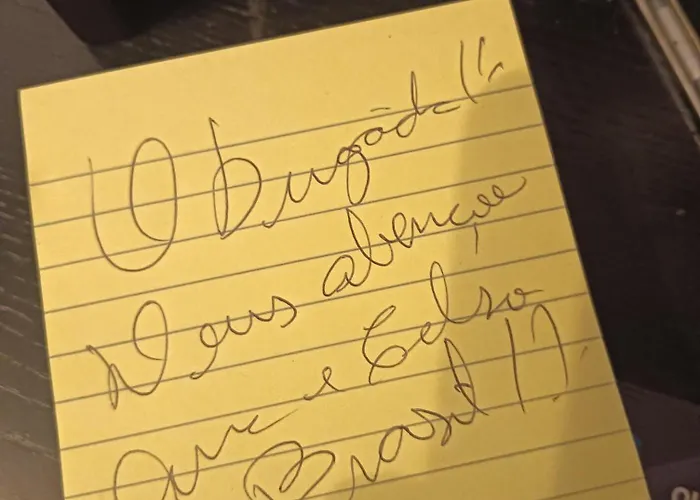 Obrigada!!
Deus abençoe
Ana e Celso
Brasil!!